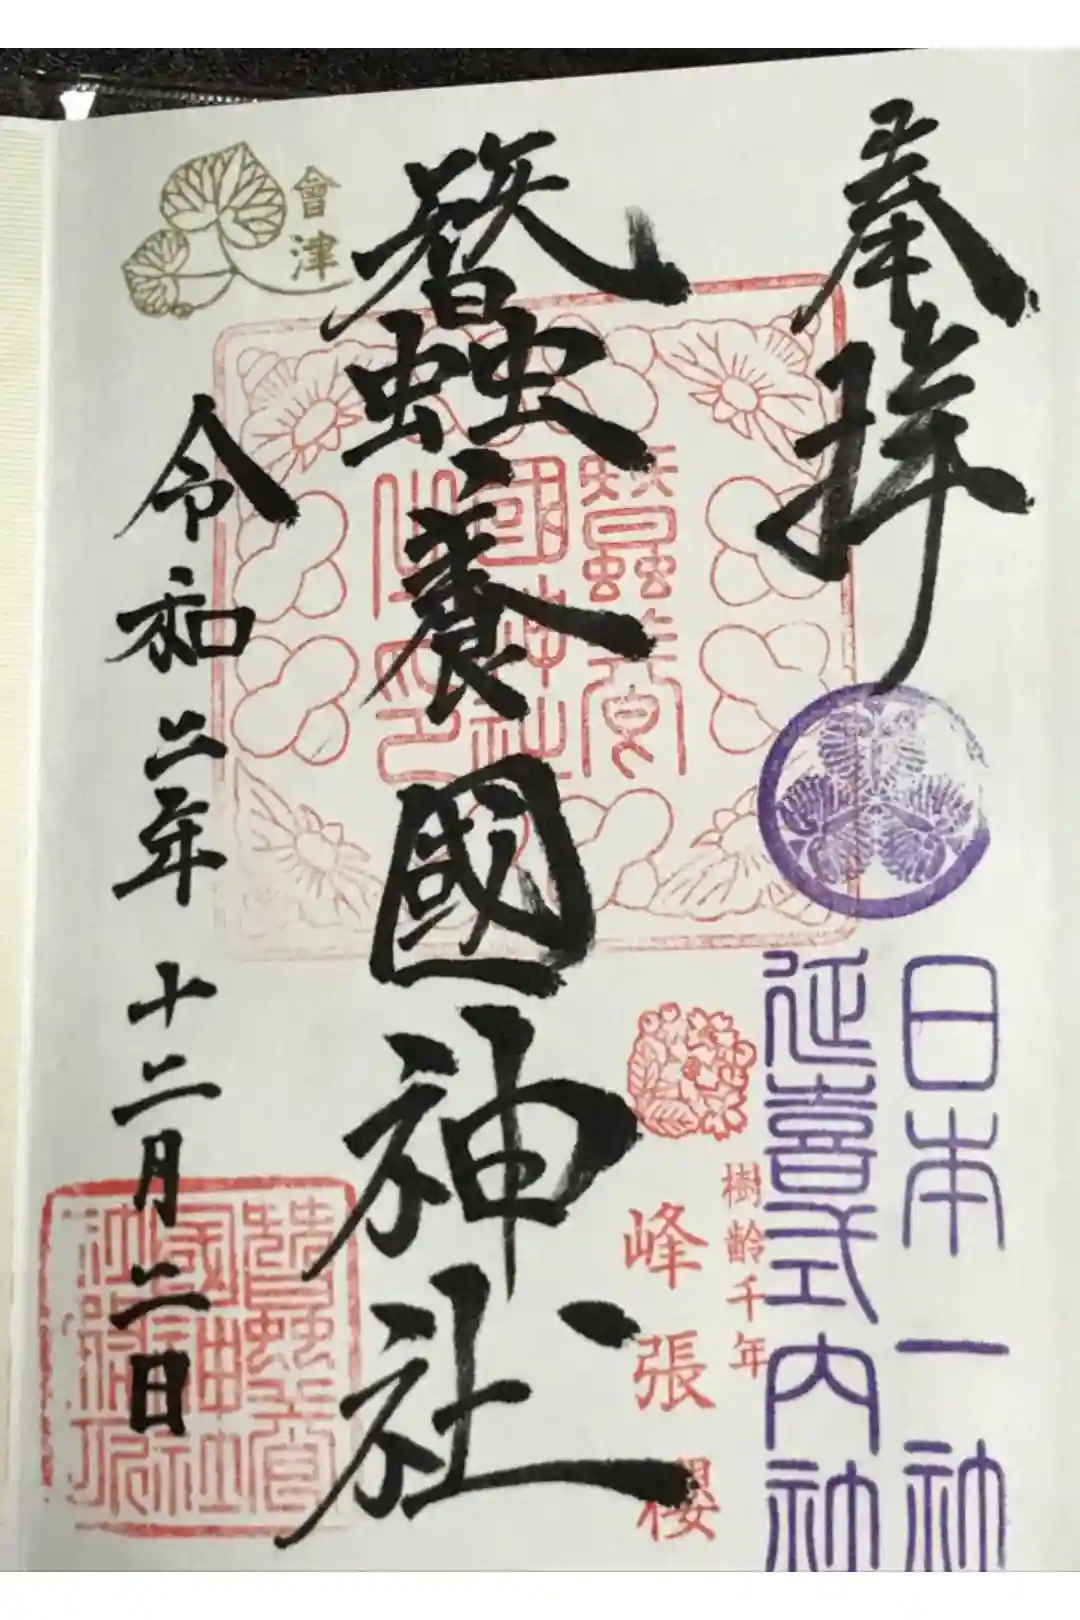 奉拝
日本一社
延喜式内社
樹齢千年
峰張櫻
蠶養國神社
蠶養
國神社
之印
會津
令和二年十二月二日
蠶養
國神社